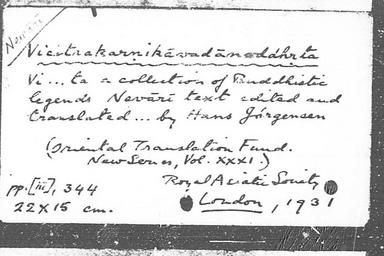 Newārī
Vicitrakarnikāvadānoddhrta
Vi...ta a collection of Buddhistic
legends Nevārī text edited and
translated... by Hans Jörgensen
(Oriental Translation Fund.
New Series, Vol. XXXI.)
Royal Asiatic Society
pp. [iii], 344
London, 1931
22x15 cm.